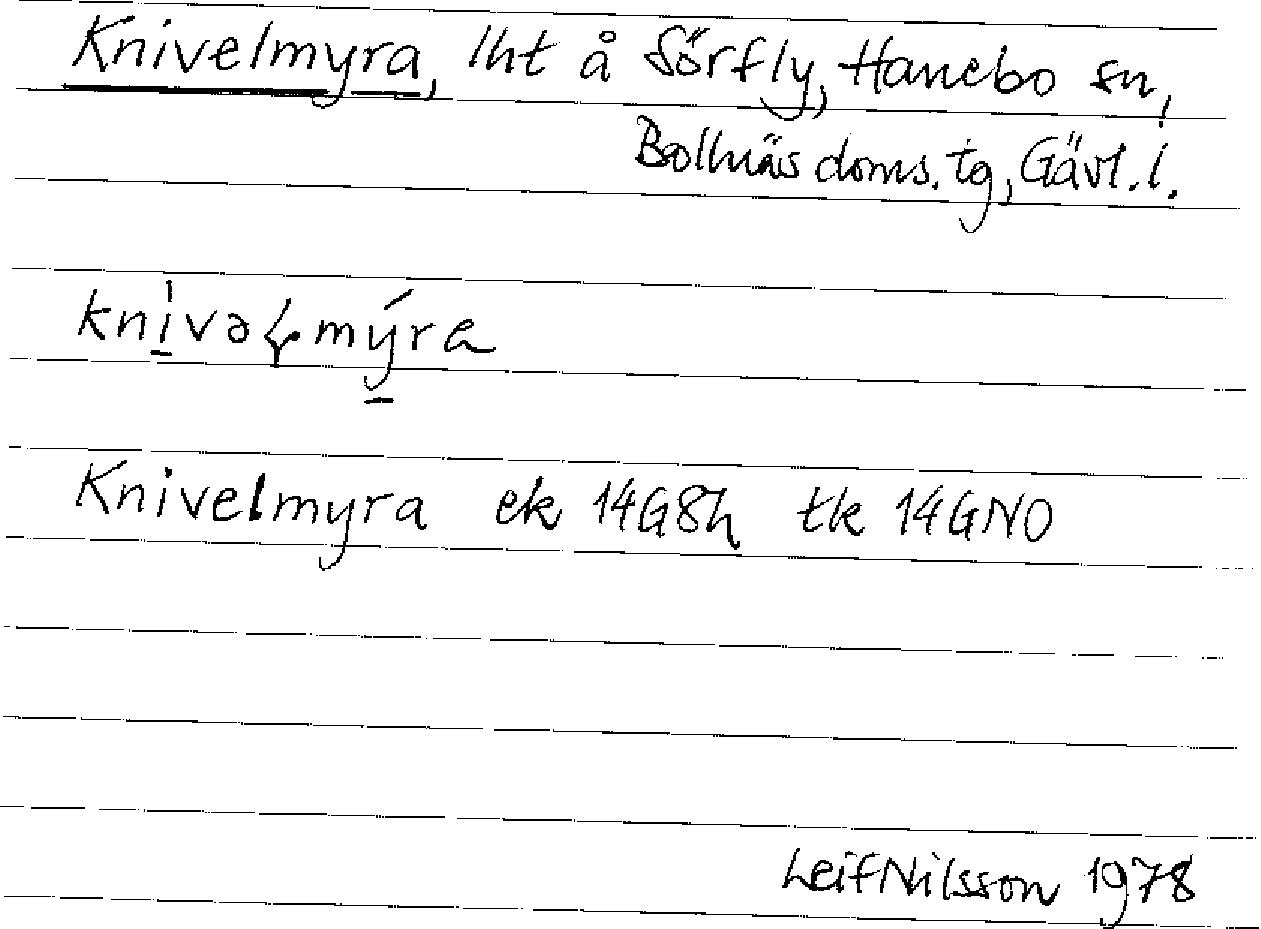 Knivelmyra, lht å Sörfly, Hanebo sn,
Bollnäs doms. tg, Gävl. l.
Knivelmyra ek 14G8h tk 14GNO
Leif Nilsson 1978